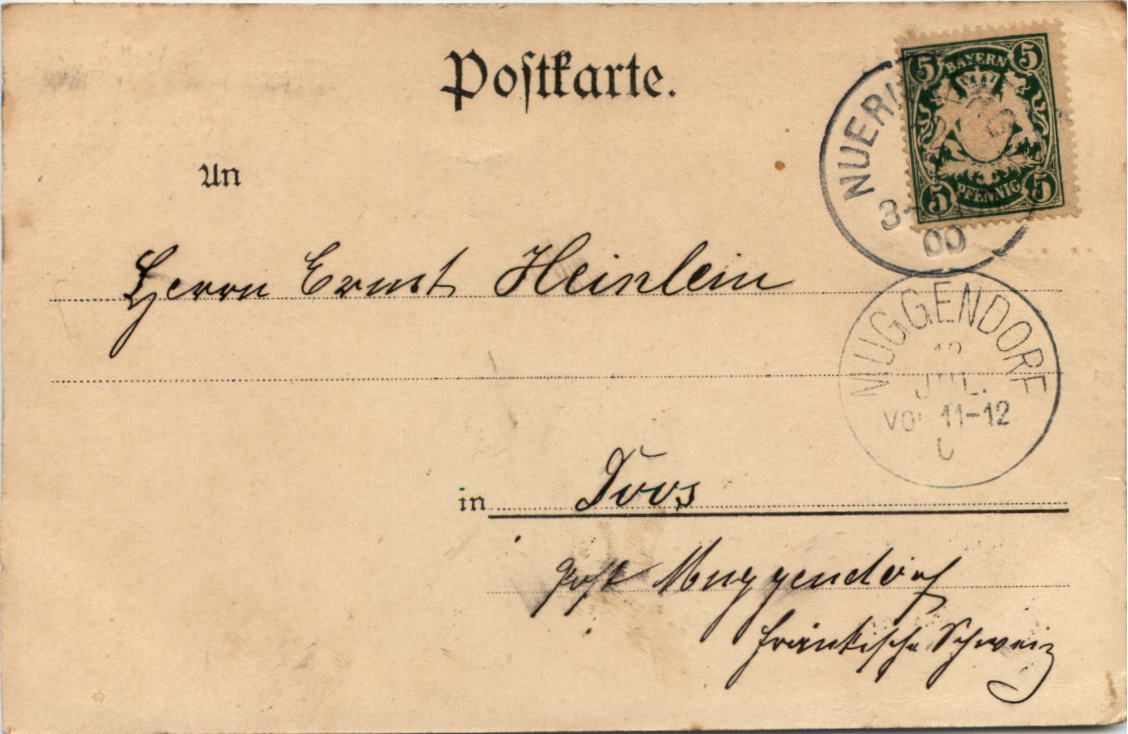 Postkarte.
5 BAYERN 5
5 PFENNIG 5
NUER
3-
00
An
Herrn Ernst Heinlein
MUGGENDORF
JUL.
VOR 11-12
in Toos
Post Muggendorf
fränkische Schweiz